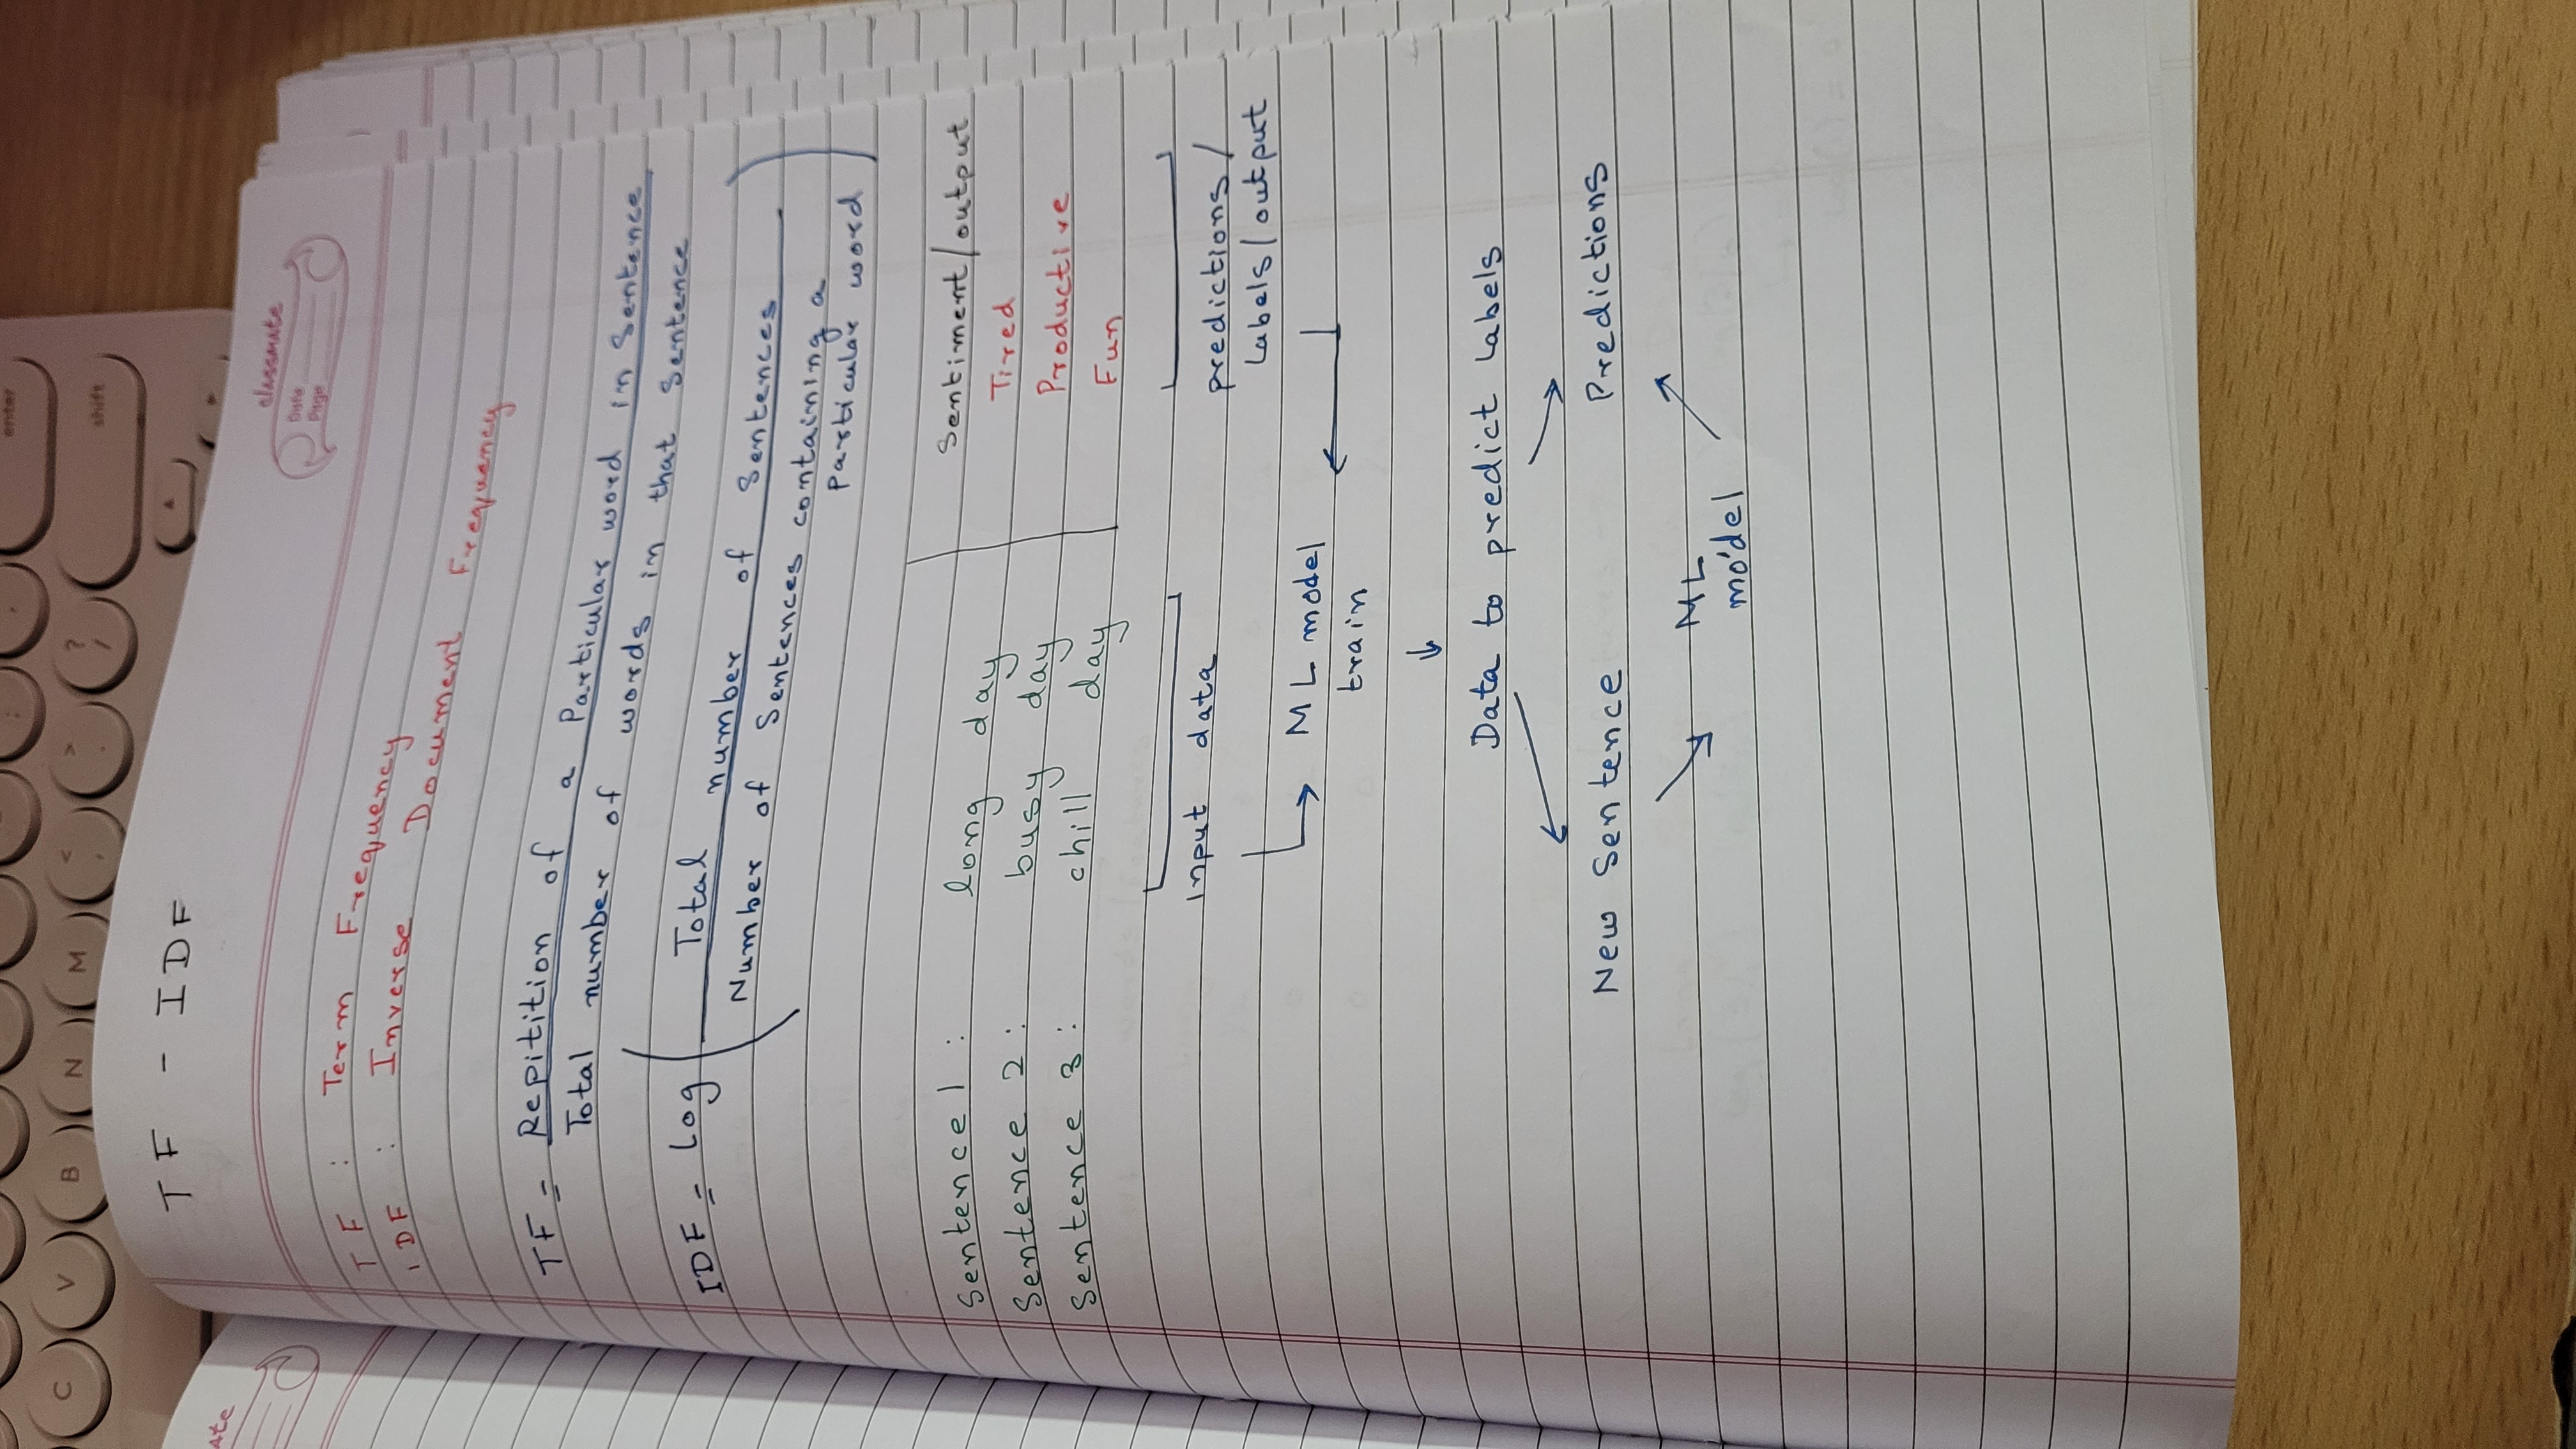 enter
C V B N M < , > . ? / shift
TF - IDF
ate
classmate
Date
Page
TF : Term Frequency
IDF : Inverse Document Frequency
TF = Repitition of a Particular word in Sentence
Total number of words in that Sentence
IDF = Log ( Total number of Sentences
Number of Sentences containing a
Particular word )
Sentiment/output
Sentence 1 : long day Tired
Sentence 2 : busy day Productive
Sentence 3 : chill day Fun
Input data predictions/
Labels/output
→ ML model ←
train
↓
Data to predict Labels
New Sentence Predictions
ML
model